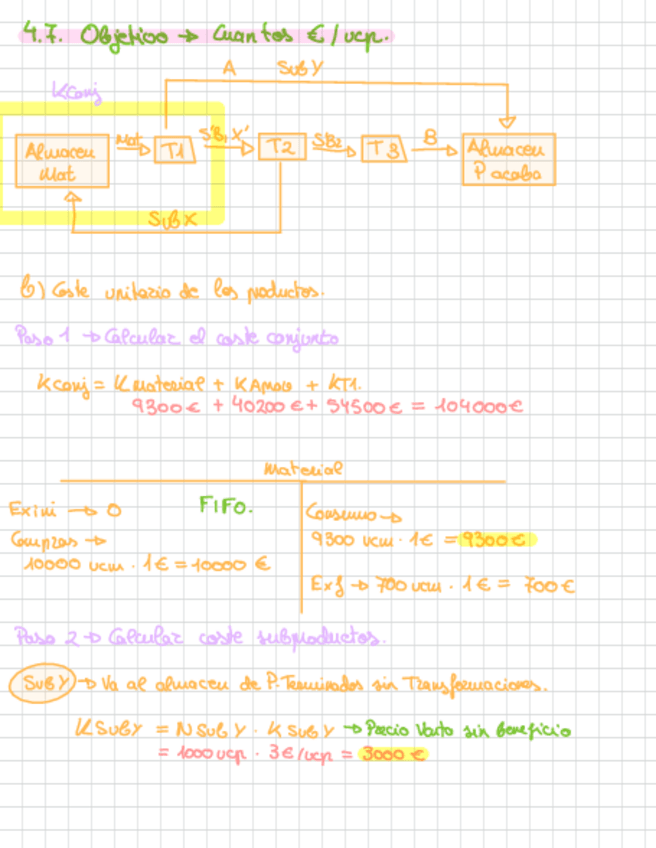 4.7. Objetivo → Cuantos €/ucp.
A SubY
KConj
Almacen Mat
Mat
T1
SB1 X'
T2
SB2
T3
B
Almacen P acaba
SubX
b) Coste unitario de los productos.
Paso 1 → Calcular el coste conjunto
Kconj = K material + K Amac + KT1.
9300€ + 40200€ + 54500€ = 104000€
Material
Exini → 0
FIFO.
Consumo →
Compras →
9300 ucm · 1€ = 9300€
10000 ucm · 1€ = 10000 €
Exf → 700 ucm · 1€ = 700€
Paso 2 → Calcular coste subproductos.
SubY → Va al almacen de P. Terminados sin Transformaciones.
KSubY = NSubY · KSubY → Precio Vento sin beneficio
= 1000 ucp · 3€/ucp = 3000€